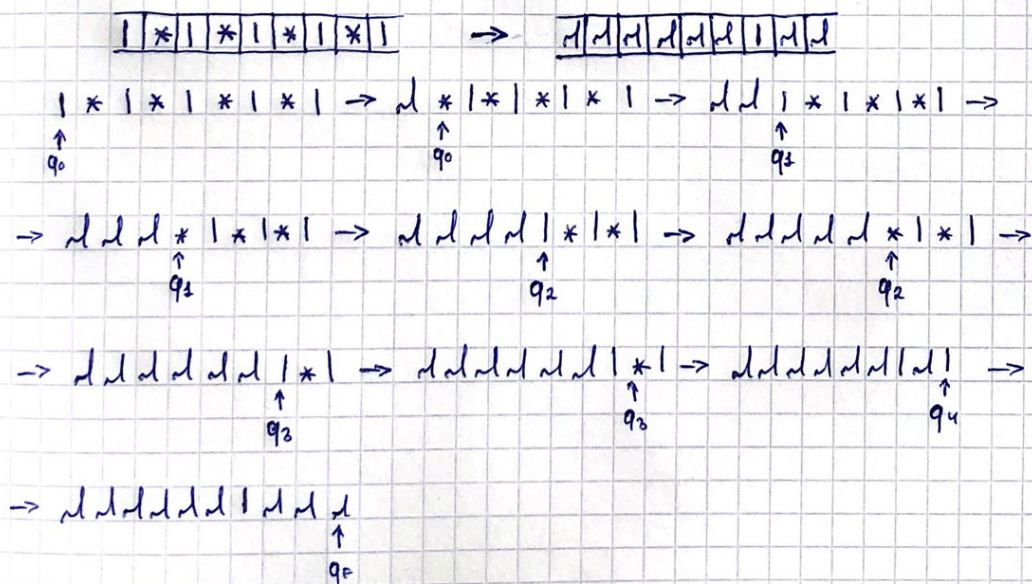 | * | * | * | * | → Λ Λ Λ Λ Λ Λ | Λ Λ
| * | * | * | * | → Λ * | * | * | * | → Λ Λ | * | * | * | →
↑ ↑ ↑
q0 q0 q1
→ Λ Λ Λ * | * | * | → Λ Λ Λ Λ | * | * | → Λ Λ Λ Λ Λ * | * | →
↑ ↑ ↑
q1 q2 q2
→ Λ Λ Λ Λ Λ Λ | * | → Λ Λ Λ Λ Λ Λ | * | → Λ Λ Λ Λ Λ Λ | Λ | →
↑ ↑ ↑
q3 q3 q4
→ Λ Λ Λ Λ Λ Λ | Λ Λ Λ
↑
qF